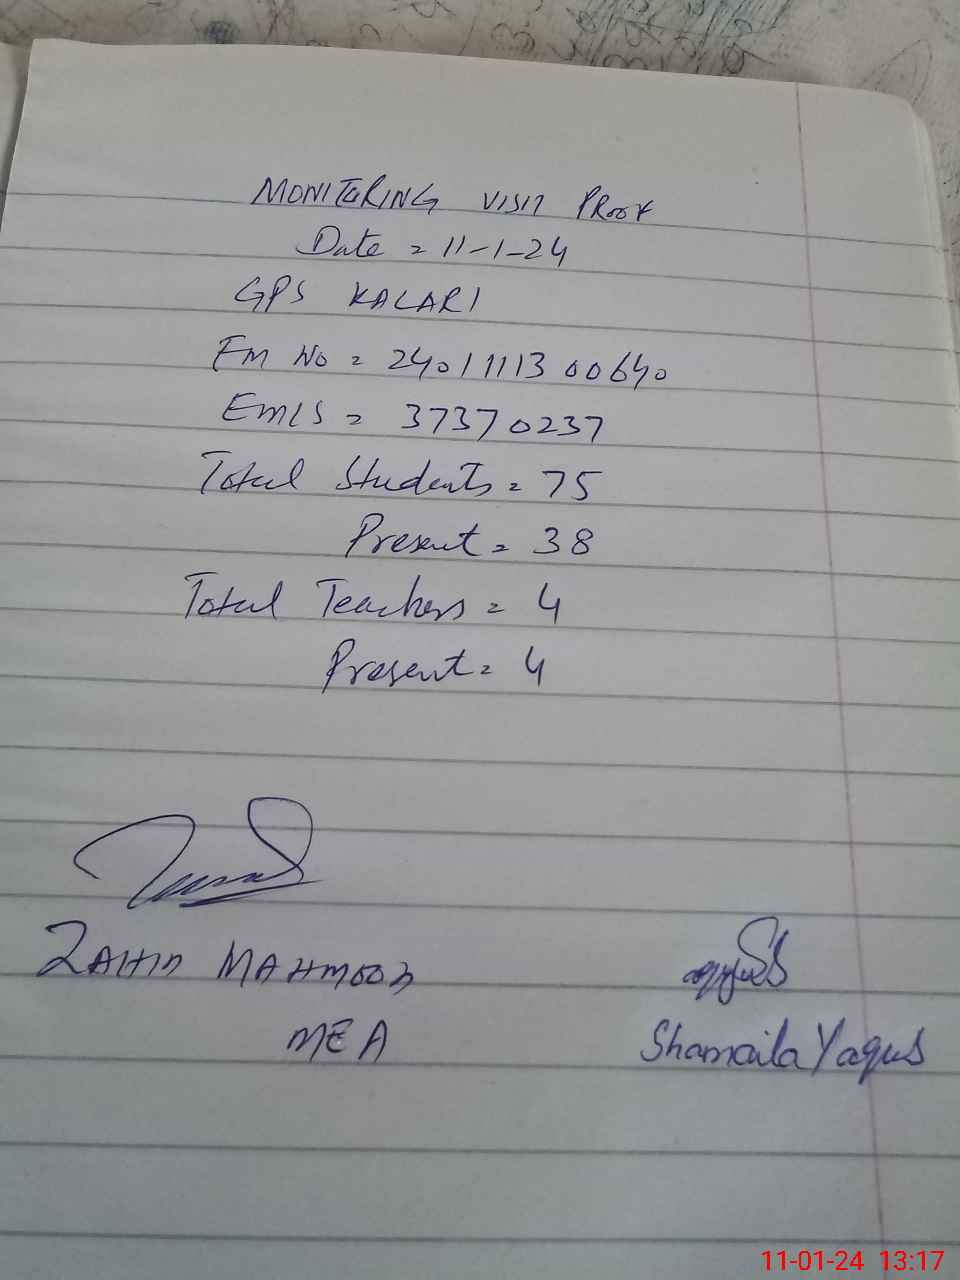 MONITORING VISIT PROOF
Date = 11-1-24
GPS KALARI
EM No = 2401111300640
EMIS = 37370237
Total Students = 75
Present = 38
Total Teachers = 4
Present = 4
ZAHID MAHMOOD
MEA
Shamaila Yaqub
11-01-24 13:17